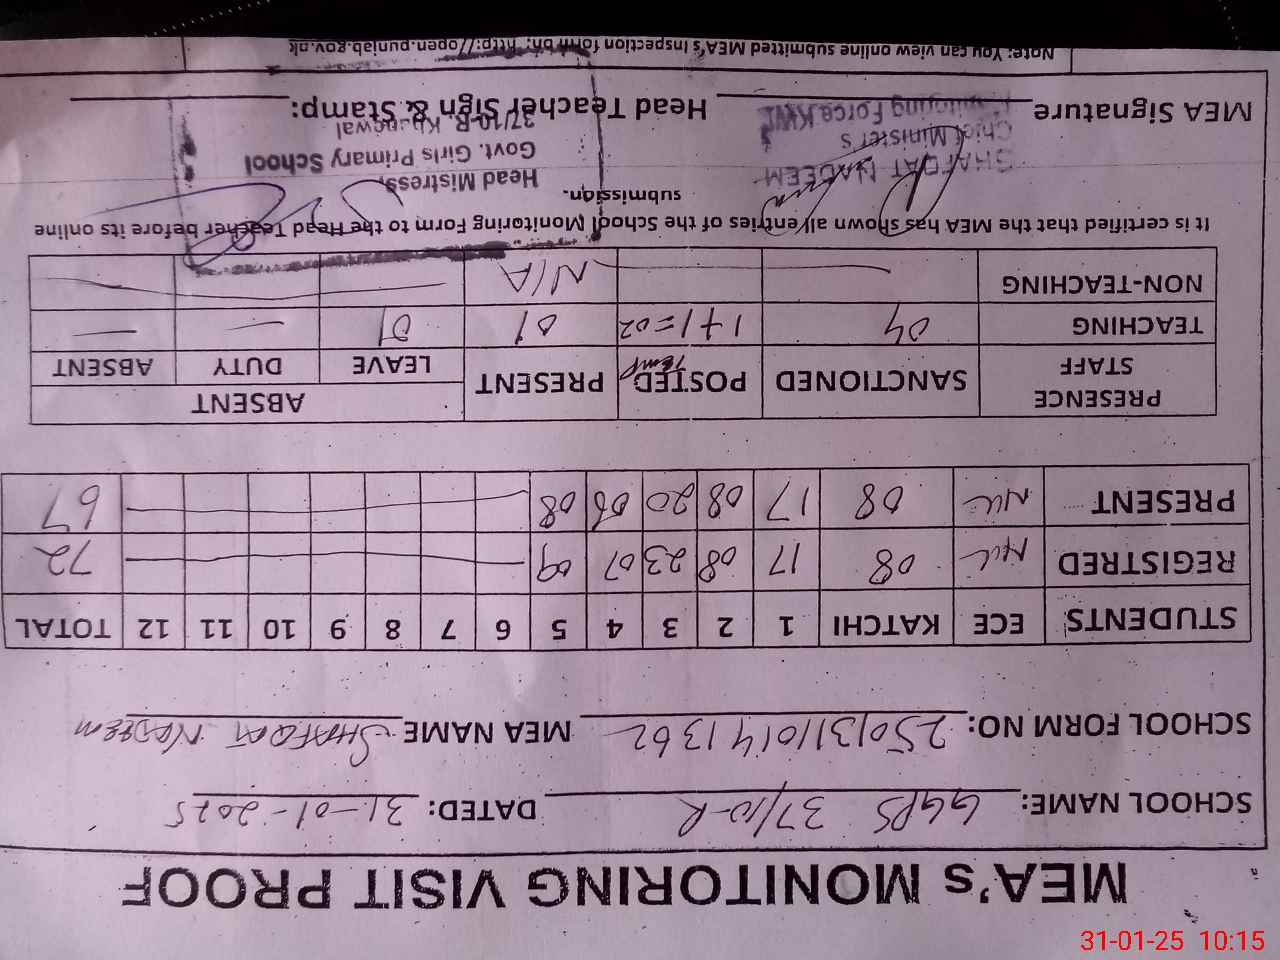 MEA's MONITORING VISIT PROOF
SCHOOL NAME: GGPS 37/10-R DATED: 31-01-2025
SCHOOL FORM NO: 2501311014 1362 MEA NAME SHAFQAT NADEEM
STUDENTS ECE KATCHI 1 2 3 4 5 6 7 8 9 10 11 12 TOTAL
REGISTRED Nil 08 17 08 23 07 09 72
PRESENT Nil 08 17 08 20 06 08 67
PRESENCE STAFF SANCTIONED POSTED Temp PRESENT ABSENT
LEAVE DUTY ABSENT
TEACHING 04 1+1=02 01 01 — —
NON-TEACHING N/A
It is certified that the MEA has shown all entries of the School Monitoring Form to the Head Teacher before its online
submission.
SHAFQAT NADEEM
Chief Minister's
Monitoring Force KWL
Head Mistress,
Govt. Girls Primary School
37/10-R Khanewal
MEA Signature Head Teacher Sign & Stamp:
Note: You can view online submitted MEA's Inspection form on: http://open.punjab.gov.pk
31-01-25 10:15